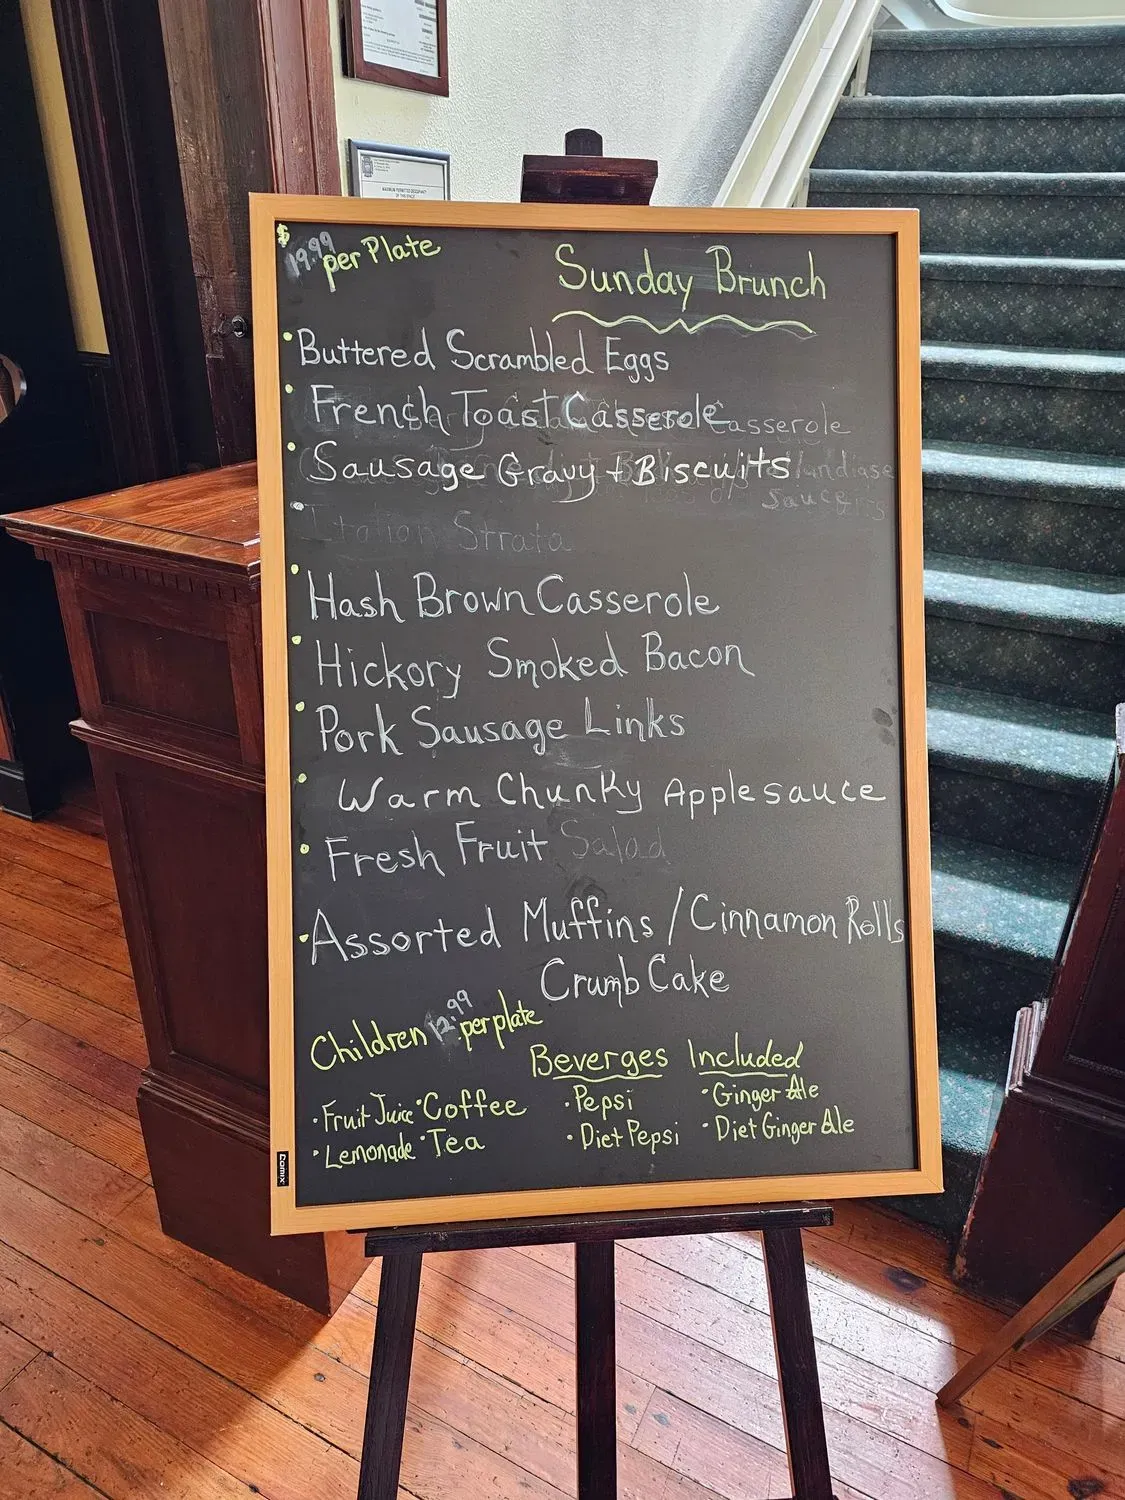 $19.99 per Plate
Sunday Brunch
• Buttered Scrambled Eggs
• French Toast Casserole Casserole
• Sausage Gravy + Biscuits
Sauce
• Italian Strata
• Hash Brown Casserole
• Hickory Smoked Bacon
• Pork Sausage Links
• Warm Chunky Applesauce
• Fresh Fruit Salad
• Assorted Muffins / Cinnamon Rolls
Crumb Cake
Children 12.99 per plate
Beverges Included
• Fruit Juice • Coffee • Pepsi • Ginger Ale
• Lemonade • Tea • Diet Pepsi • Diet Ginger Ale
Domix
MAXIMUM PERMITTED OCCUPANCY
OF THIS SPACE